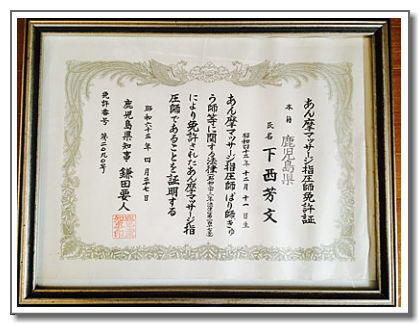 あん摩マッサージ指圧師免許証
本籍 鹿児島県
氏名 下西芳文
昭和四十三年十二月十一日生
あん摩マッサージ指圧師はり師きゅ
う師等に関する法律
により免許されたあん摩マッサージ指
圧師であることを証明する
昭和六十三年四月二十七日
鹿児島県知事 鎌田要人
免許番号 第二〇九〇号